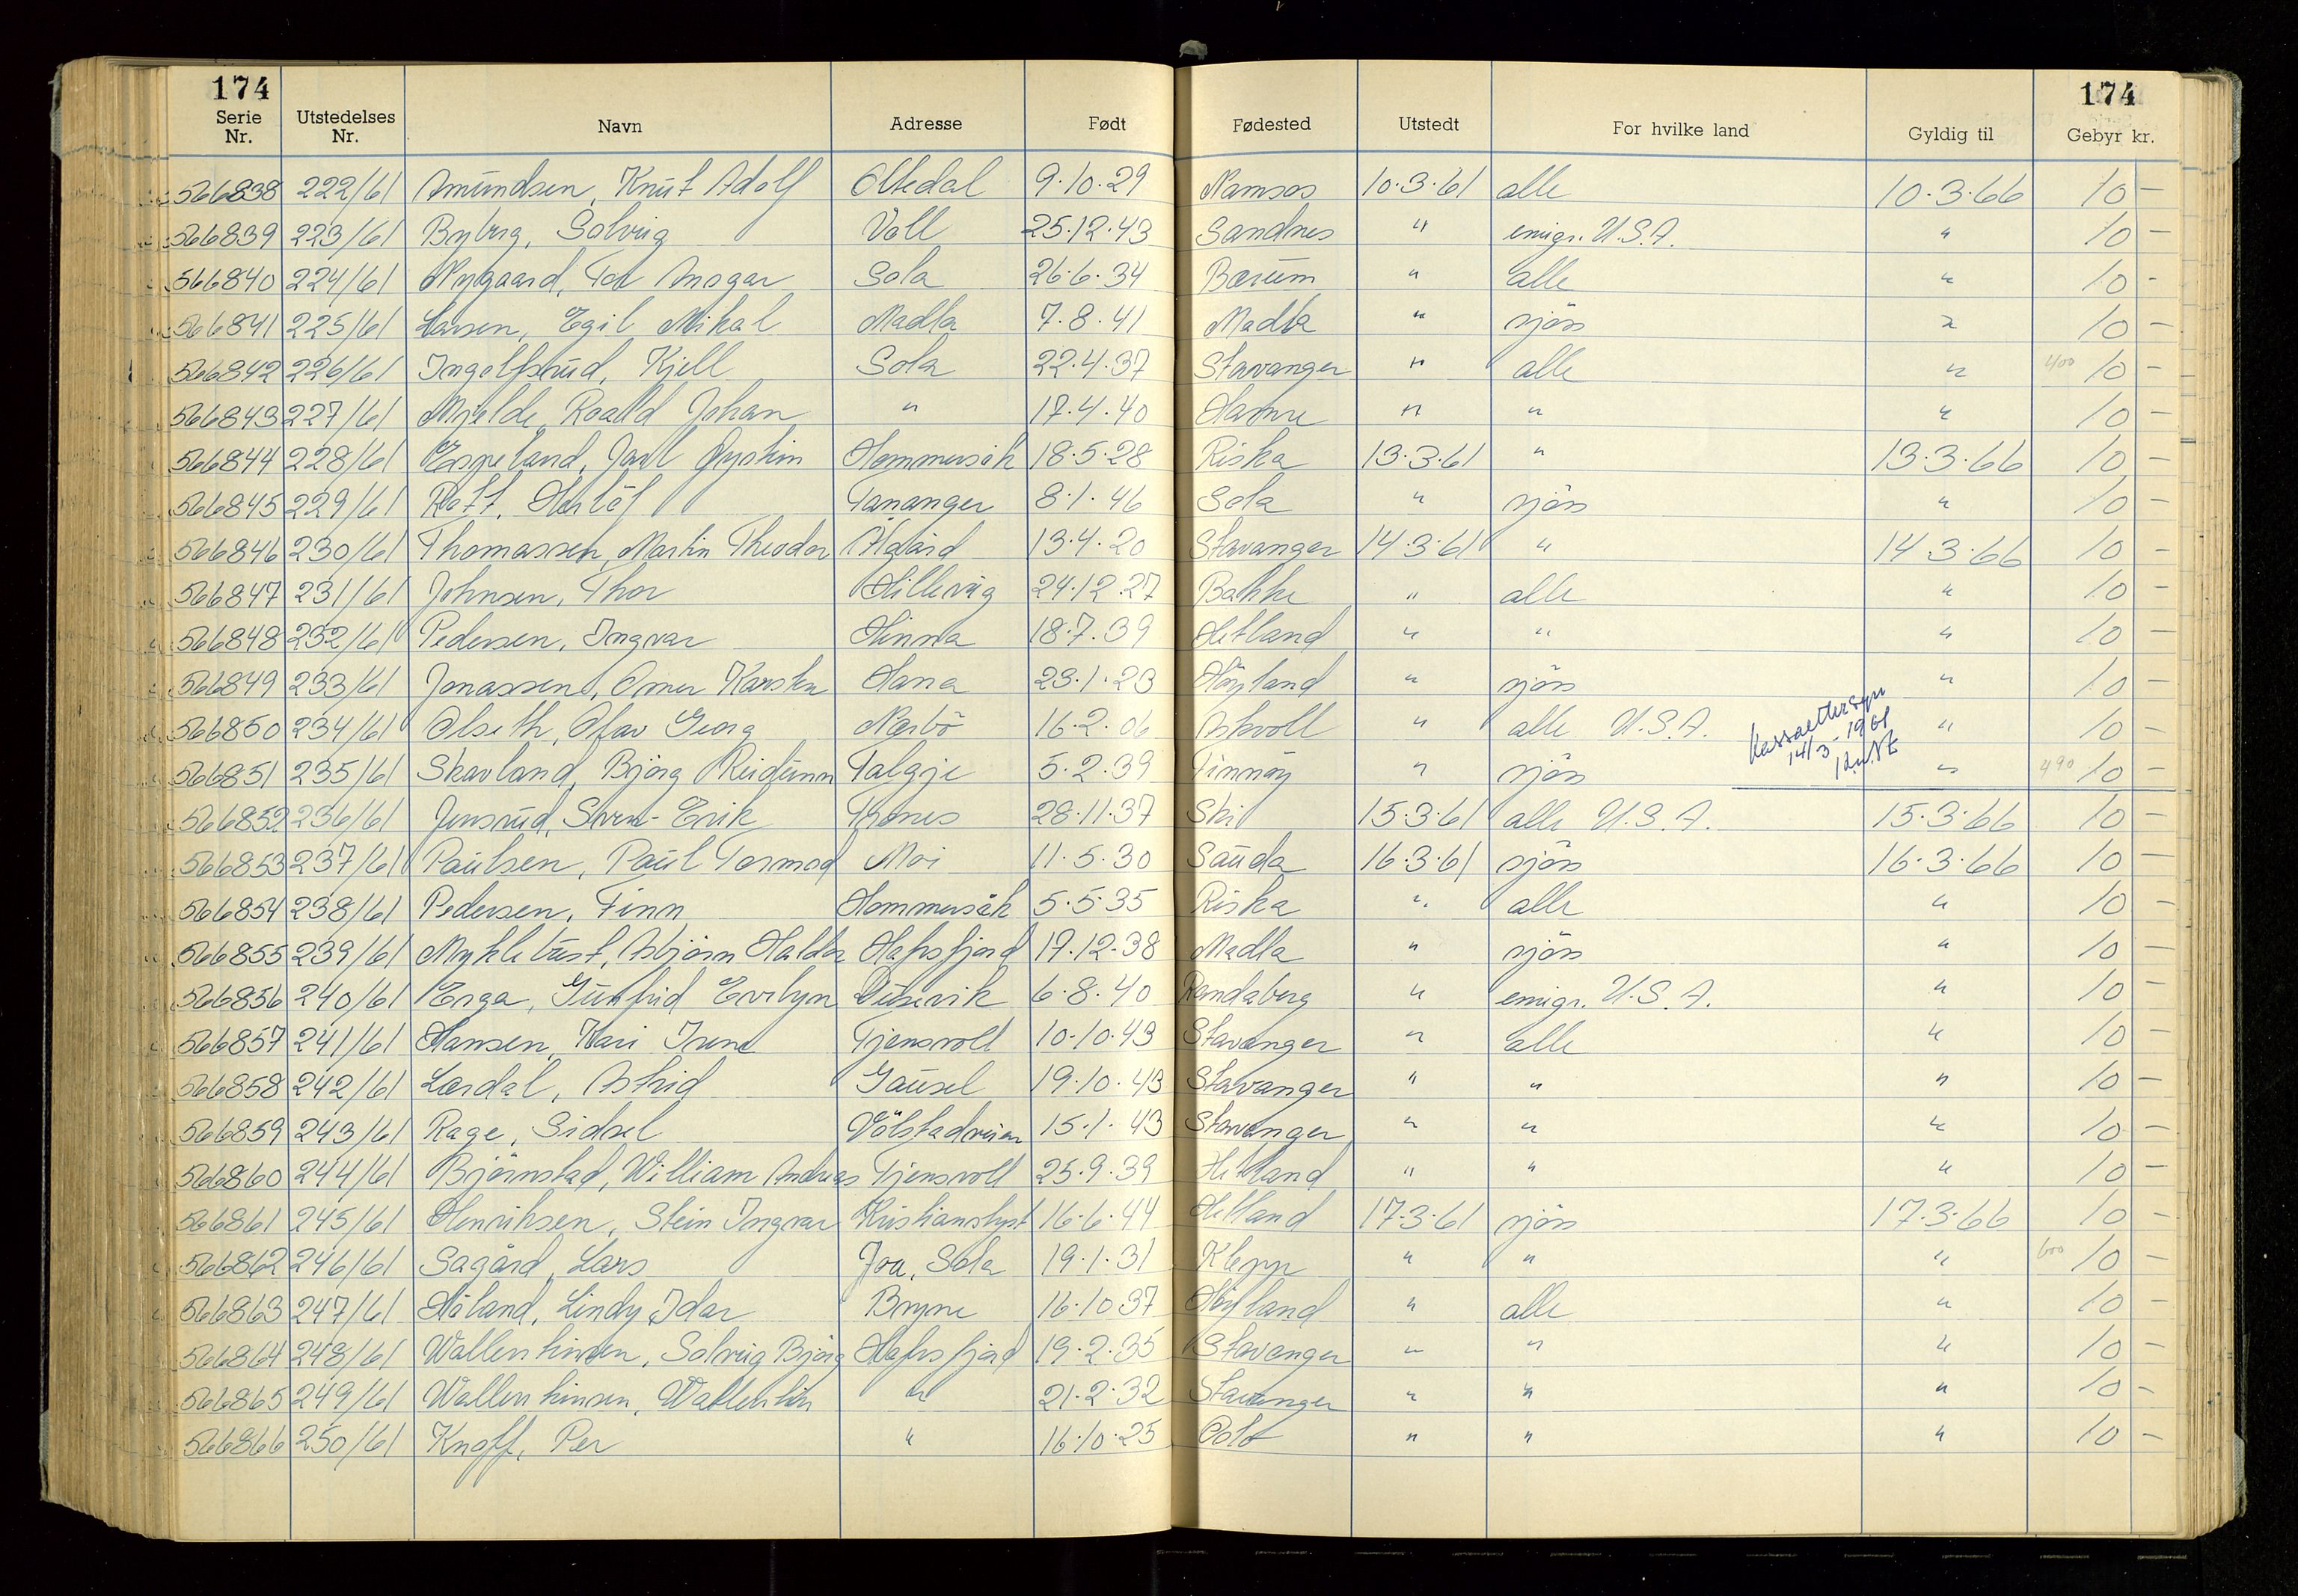 174 174
Serie Nr. Utstedelses Nr. Navn Adresse Født Fødested Utstedt For hvilke land Gyldig til Gebyr kr.
566838 222/61 Amundsen, Knut Adolf Oltedal 9.10.29 Namsos 10.3.61 alle 10.3.66 10 –
566839 223/61 Byberg, Solveig Voll 25.12.43 Sandnes " emigr. U.S.A. " 10 –
566840 224/61 Nygaard, Tor Ansgar Sola 26.6.34 Bærum " alle " 10 -
566841 225/61 Larsen, Egil Mikal Madla 7.8.41 Madla " sjös " 10 –
566842 226/61 Ingolfsrud, Kjell Sola 22.4.37 Stavanger " alle " 400 10 –
566843 227/61 Mjelde, Roald Johan " 17.4.40 Hamre " " " 10 –
566844 228/61 Espeland, Jarl Øystein Hommersåk 18.5.28 Riska 13.3.61 " 13.3.66 10 –
566845 229/61 Rott, Tananger 8.1.46 Sola " sjös " 10 –
566846 230/61 Thomassen, Martin Theodor Ålgård 13.4.20 Stavanger 14.3.61 " 14.3.66 10 –
566847 231/61 Johnsen, Thor Hillevåg 24.12.27 Bakke " alle " 10 –
566848 232/61 Pedersen, Ingvar Hinna 18.7.39 Hetland " " " 10 –
566849 233/61 Jonassen, Omer Karsten Hana 23.1.23 Höyland " sjös " 10 –
566850 234/61 Olseth, Olav Georg Nærbö 16.2.06 Askvoll " alle U.S.A. Kassaettersyn " 10 –
14/3-1961
566851 235/61 Skavland, Björg Reidunn Talgje 5.2.39 Finnöy " sjös " 490 10 –
566852 236/61 Jensrud, Svein-Erik Tjones 28.11.37 Ski 15.3.61 alle U.S.A. 15.3.66 10 –
566853 237/61 Paulsen, Paul Tormod Moi 11.5.30 Sauda 16.3.61 sjös 16.3.66 10 –
566854 238/61 Pedersen, Finn Hommersåk 5.5.35 Riska " alle " 10 –
566855 239/61 Myklebust, Asbjörn Haldor Hafrsfjord 17.12.38 Madla " sjös " 10 –
566856 240/61 Erga, Gunfrid Evelyn Dusavik 6.8.40 Randaberg " emigr. U.S.A. " 10 –
566857 241/61 Hansen, Kari Irene Tjensvoll 10.10.43 Stavanger " alle " 10 –
566858 242/61 Lærdal, Astrid Gausel 19.10.43 Stavanger " " " 10 –
566859 243/61 Rage, Sidsel Völstadveien 15.1.43 Stavanger " " " 10 –
566860 244/61 Björnstad, William Andreas Tjensvoll 25.9.39 Hetland " " " 10 –
566861 245/61 Henriksen, Stein Ingvar Kristianslyst 16.6.44 Hetland 17.3.61 sjös 17.3.66 10 –
566862 246/61 Sagård, Lars Joa, Sola 19.1.31 Klepp " " " 600 10 –
566863 247/61 Håland, Lindy Idar Bryne 16.10.37 Höyland " alle " 10 –
566864 248/61 Wallentinsen, Solveig Björg Hafrsfjord 19.2.35 Stavanger " " " 10 –
566865 249/61 Wallentinsen, Wallentin " 21.2.32 Stavanger " " " 10 –
566866 250/61 Knoff, Per " 16.10.25 Oslo " " " 10 –